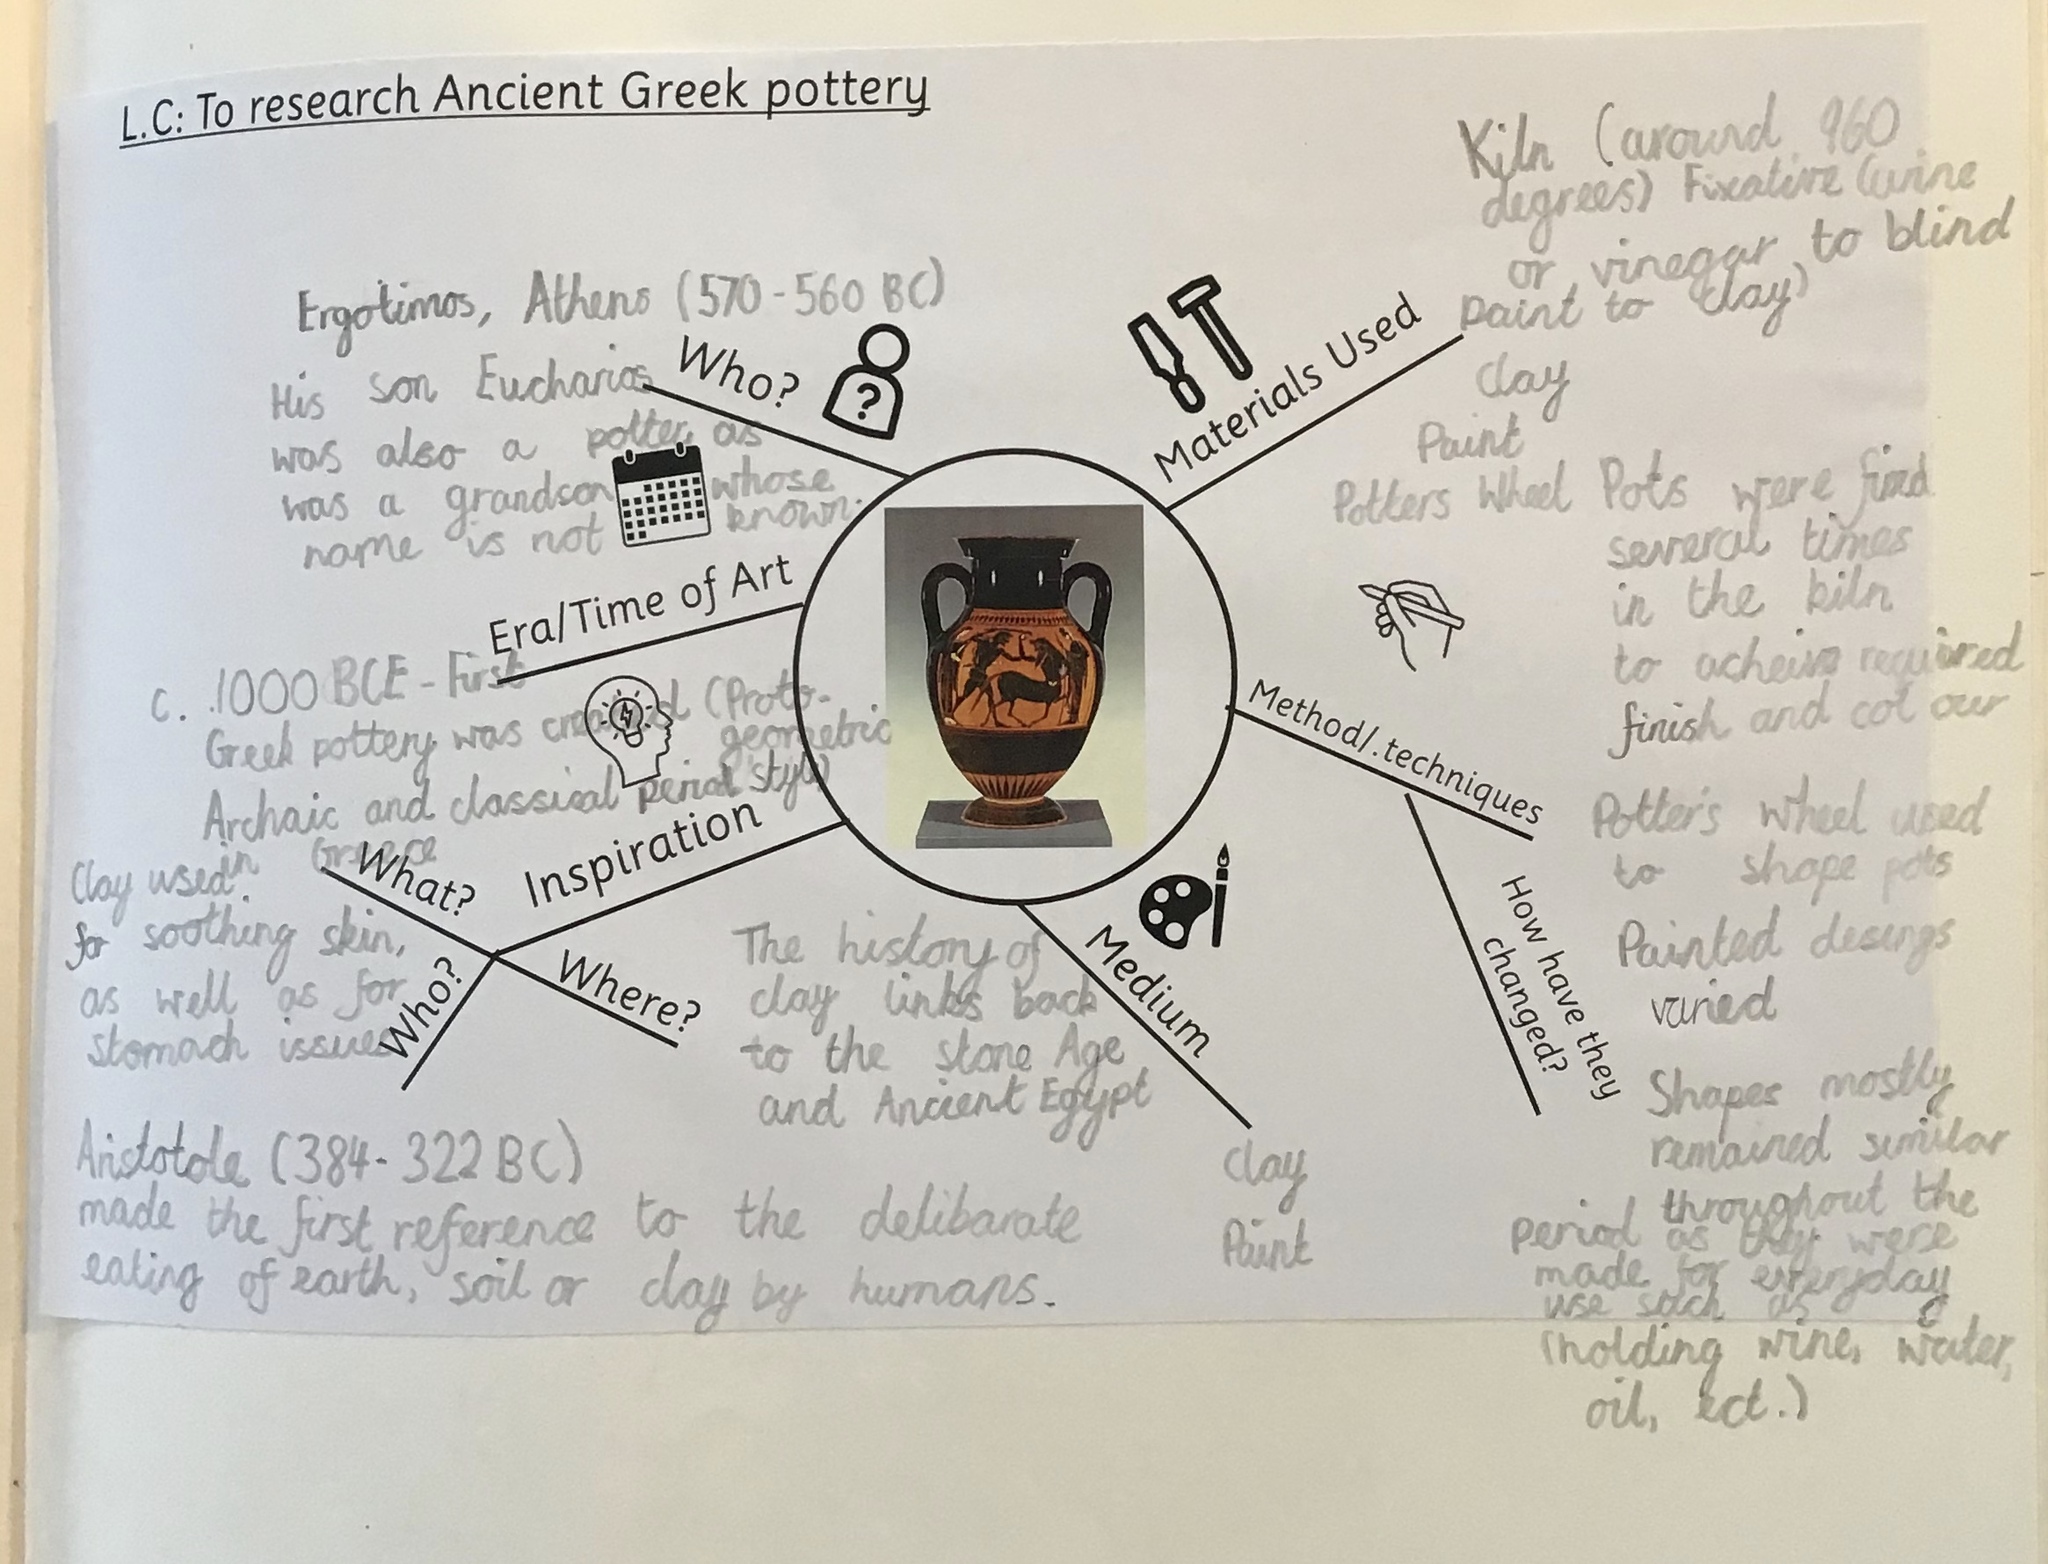 L.C: To research Ancient Greek pottery
Ergotimos, Athens (570-560 BC)
Who?
His son Eucharios
was also a potter, as
was a grandson whose
name is not known.
Era/Time of Art
C. 1000 BCE - First
Greek pottery was created (Proto-
geometric
Archaic and classical period style)
in Greece
Inspiration
What?
Clay used
for soothing skin,
as well as for
stomach issues
Who?
Aristotole (384-322 BC)
made the first reference to the delibarate
eating of earth, soil or clay by humans.
Where?
The history of
clay links back
to the stone Age
and Ancient Egypt
Medium
Clay
Paint
Materials Used
Kiln (around 960
degrees) Fixative (urine
or vinegar to blind
paint to clay)
Clay
Paint
Potters Wheel
Method/.techniques
Pots were fired
several times
in the kiln
to acheive required
finish and colour
Potter's wheel used
to shape pots
Painted desings
varied
How have they
changed?
Shapes mostly
remained similar
throughout the
period as they were
made for everyday
use such as
(holding wine, water,
oil, ect.)